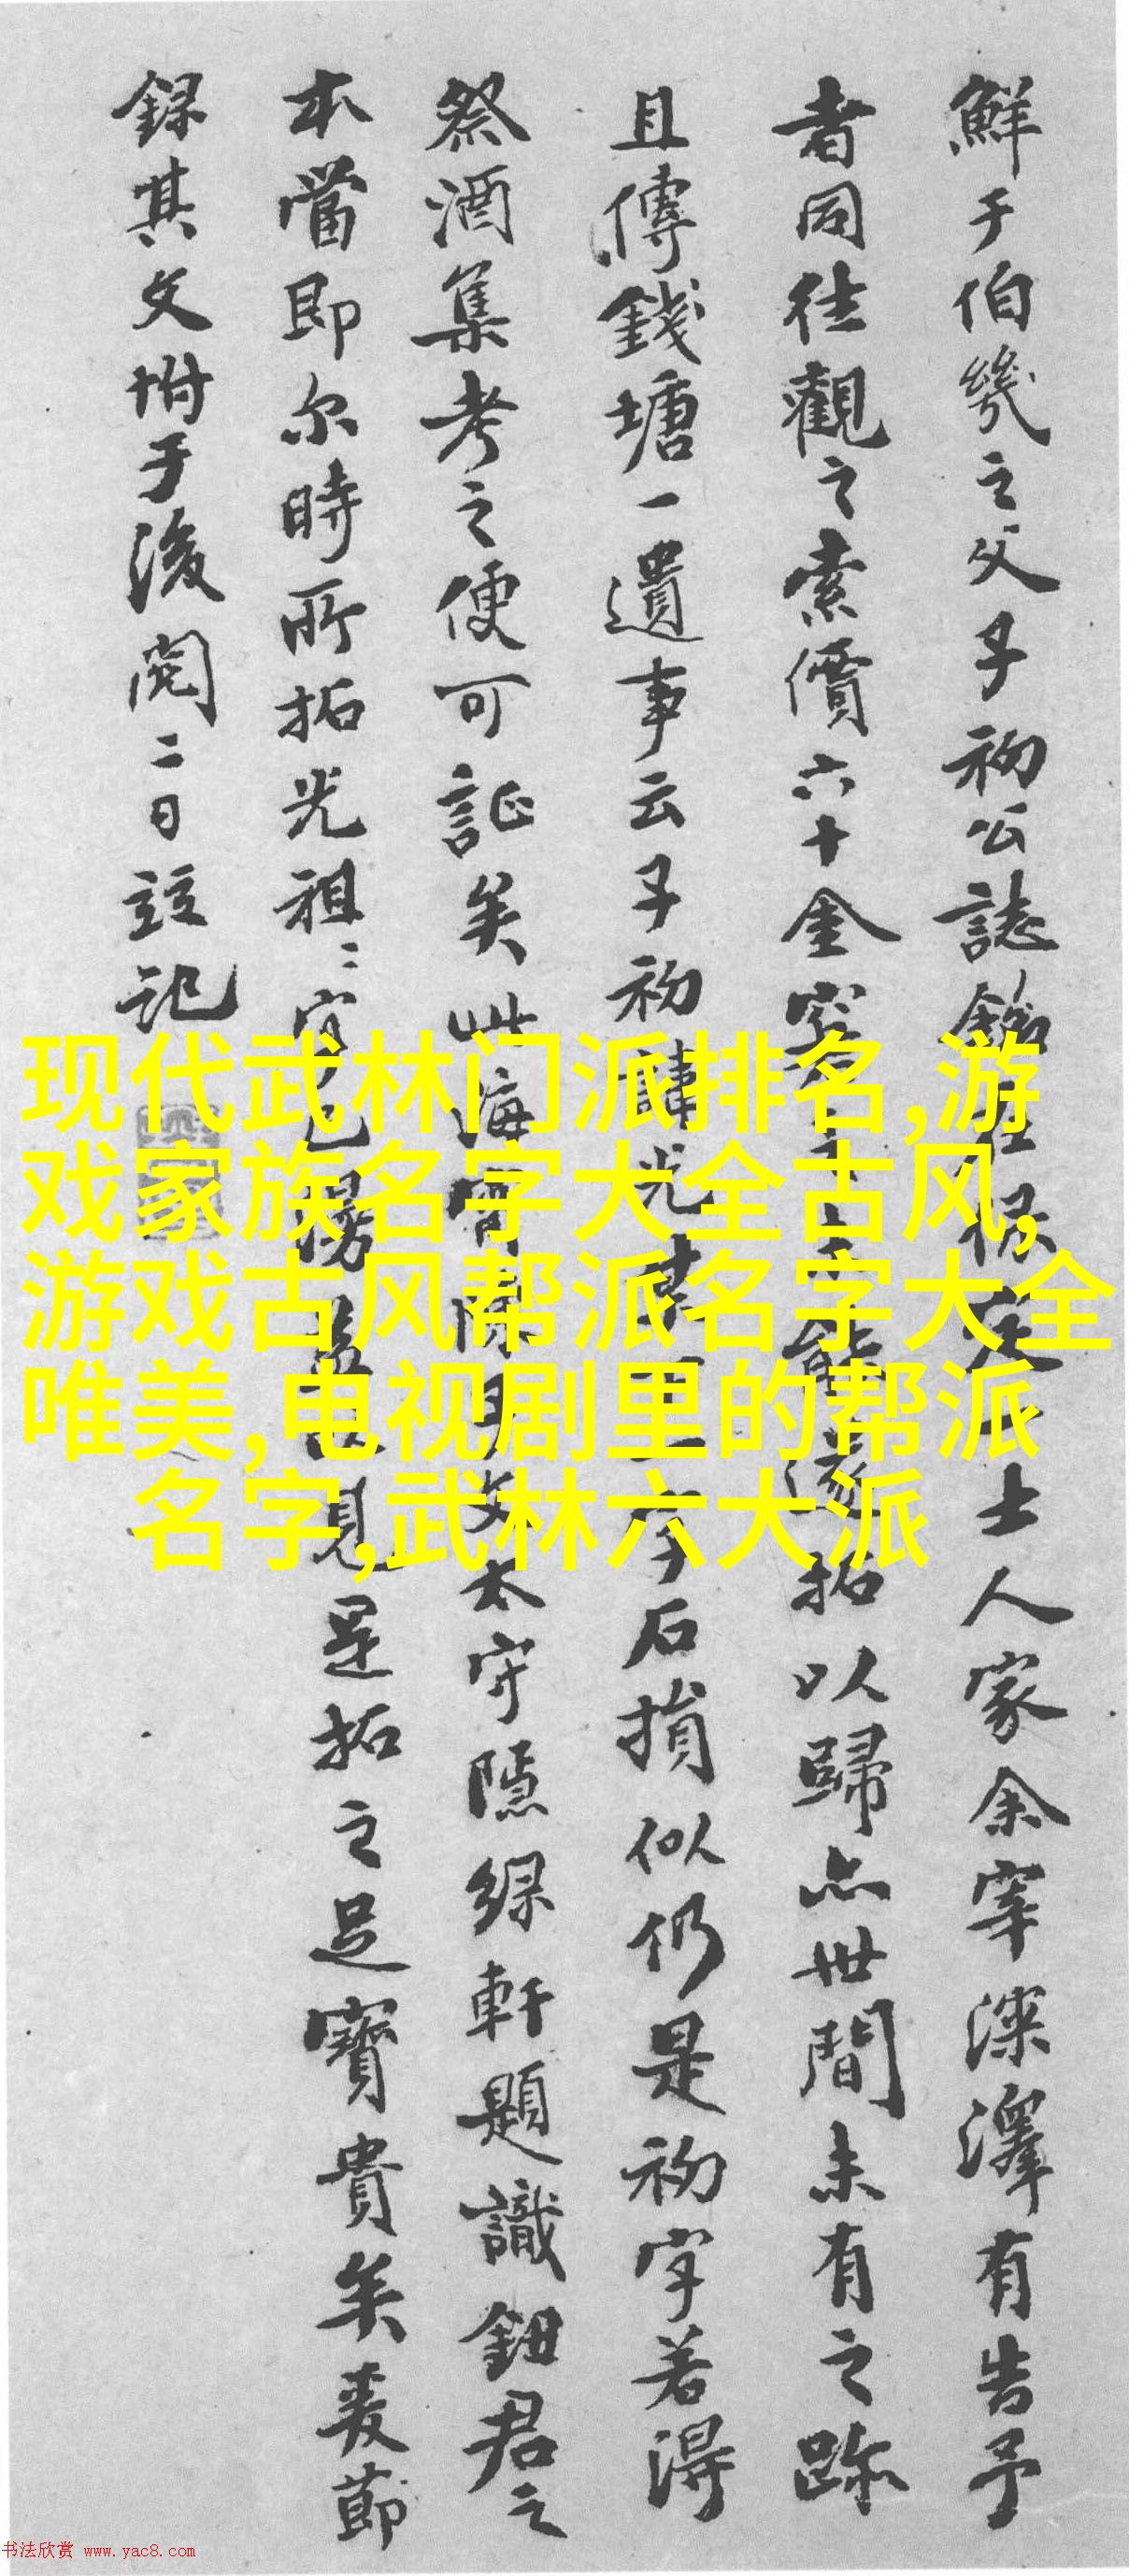 鮮于伯幾之父子初公誌銘士人家余宰溧澤有告予
者同往觀之索價六十金能遂拓以歸亦世間未有之跡
且傳錢塘一遺事云子初諱光字石損似仍是初字若得
祭酒集考之便可証矣此海寧陳子文太守隱綠軒題識鈕君之
本當即尔時所拓光祖二字已漫見是拓之足寶貴矣爰節
錄其文坿于後二日記
现代武林门派排名,游
戏家族名字大全古风,
游戏古风帮派名字大全
唯美,电视剧里的帮派
名字,武林六大派
书法欣赏 www.yac8.com